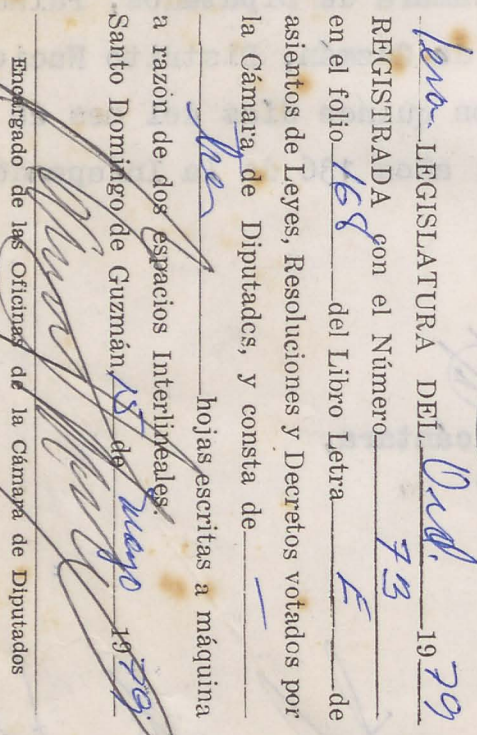 1ra. LEGISLATURA DEL Ord. 1979
REGISTRADA con el Número 73
en el folio 168 del Libro Letra E de
asientos de Leyes, Resoluciones y Decretos votados por
la Cámara de Diputados, y consta de
tres hojas escritas a máquina
a razón de dos espacios Interlineales
Santo Domingo de Guzmán, 15 de mayo 1979
Encargado de las Oficinas de la Cámara de Diputados